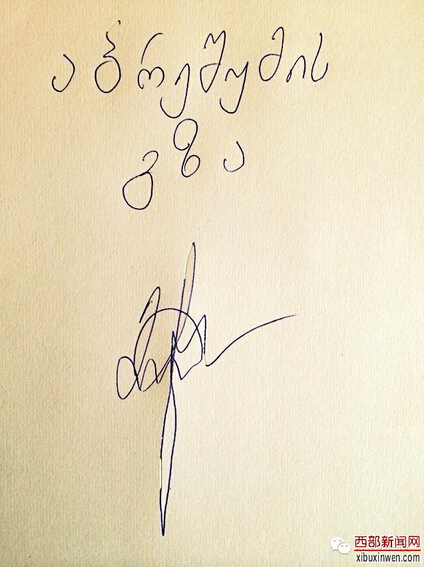 აბრეშუმის
გზა
西部新闻网
xibuxinwen.com